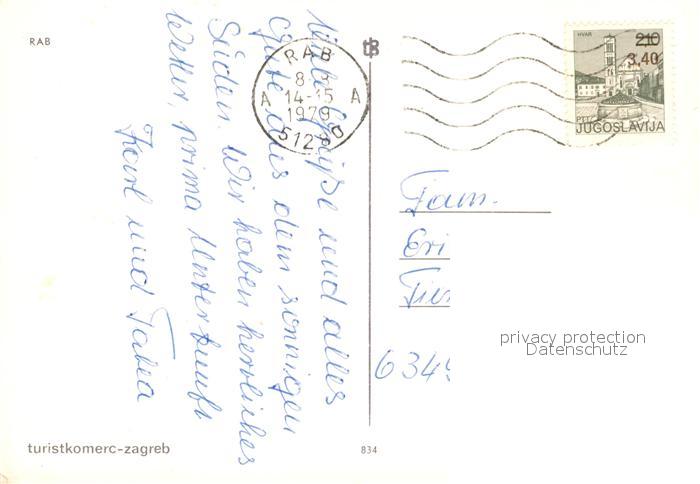 RAB
Viele Grüße und alles
Gute aus dem sonnigen
Süden. Wir haben herrliches
Wetter, prima Unterkunft
Karl und Tabea
turistkomerc-zagreb
834
tB
RAB
14-15
A A
1979
HVAR
210
3,40
PTT
JUGOSLAVIJA
Fam.
Eri
privacy protection
Datenschutz